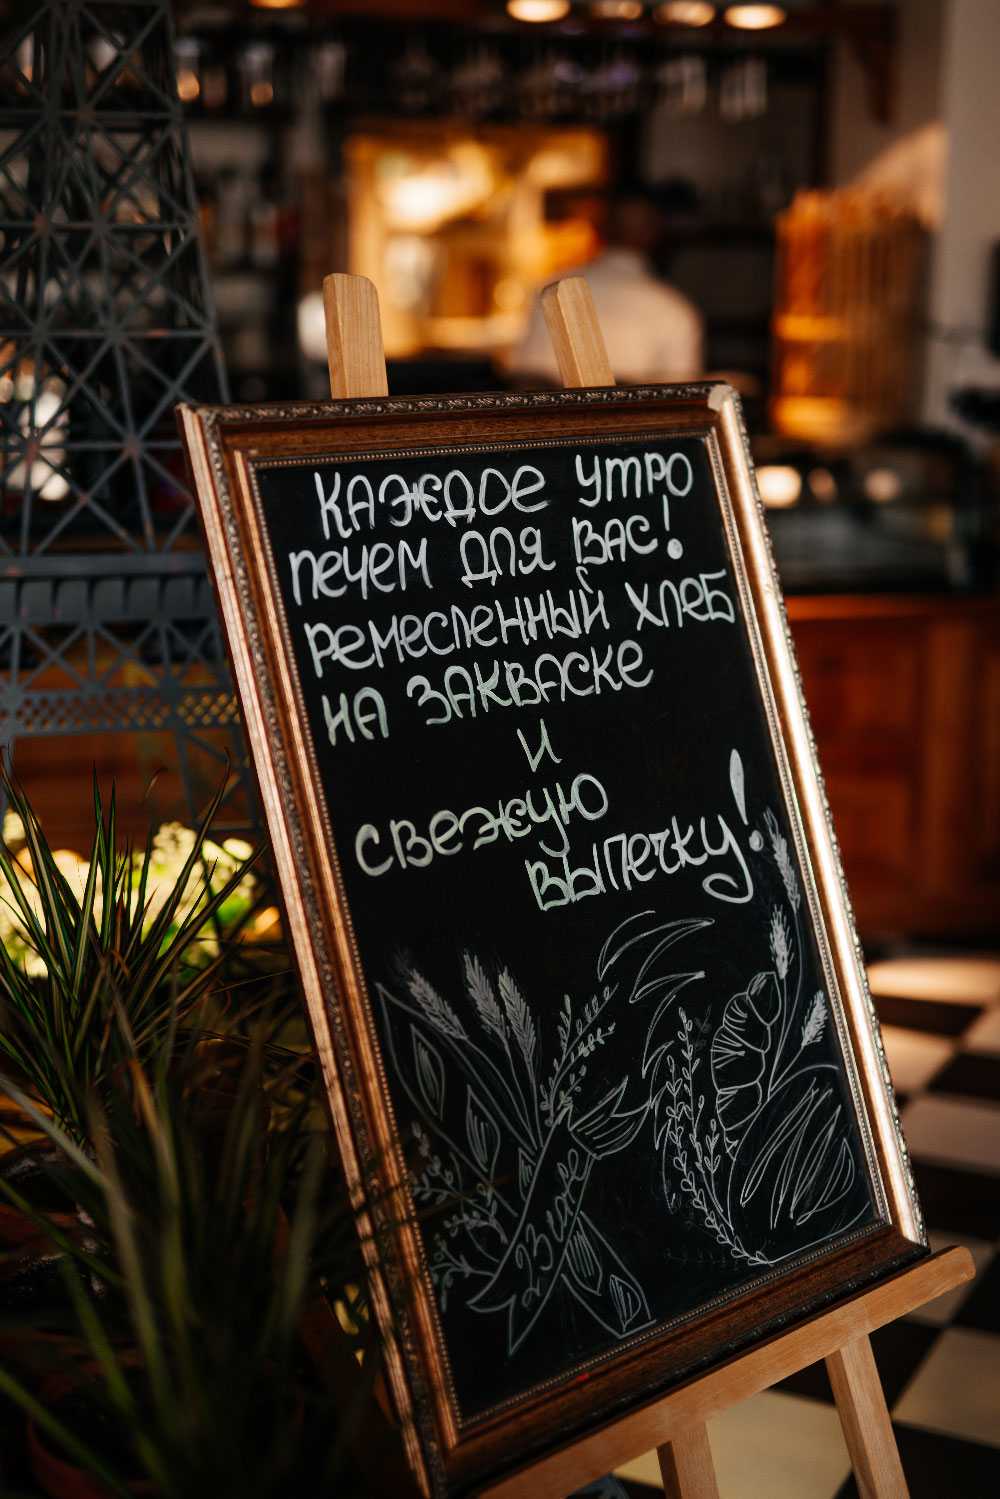 Каждое утро
печем для вас!
Ремесленный хлеб
на закваске
и
свежую
выпечку!